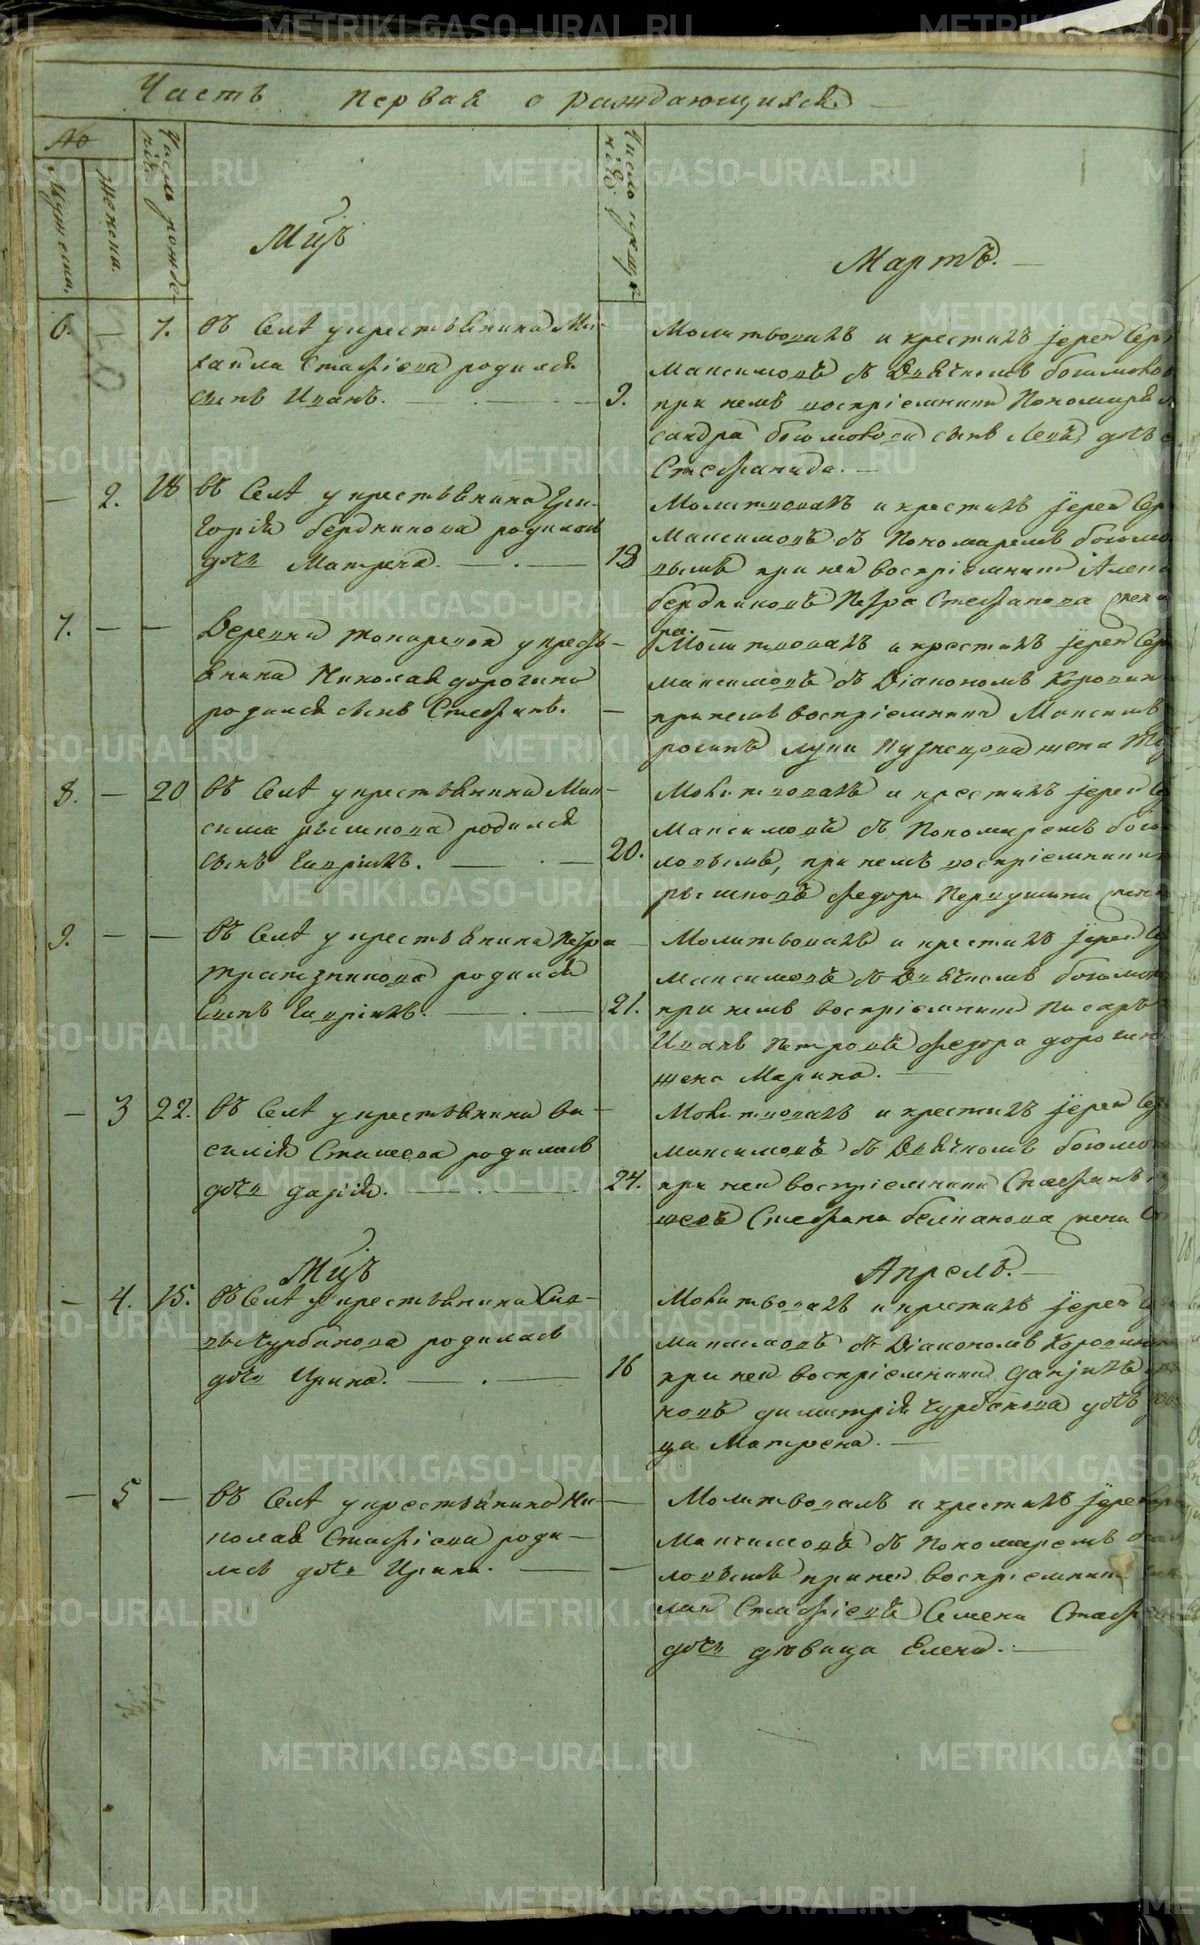 Часть первая о раждающихся
№
Мужеска.
Женска.
Число рожде-
нія
Число креще-
нія
Мцъ
Мартъ.
6. 7. Въ Селѣ у крестьянина Ми-
хаила Стафіева родился
сынъ Иванъ.
9.
Молитвовалъ и крестилъ іерей Сер
Максимовъ съ Дьячкомъ богомолов
при немъ воспріемники Пономаря
сандра богомолова сынъ Левъ дочь
Стефанида.
2. 18 Въ Селѣ у крестьянина Гри-
горія бердникова родилась
дочь Матрена.
18
Молитвовалъ и крестилъ іерей Сер
Максимовъ съ Пономаремъ богомо
вымъ при ней воспріемники Алек
бердниковъ Петра Стефанова жена
ра.
7. Деревни токаревой у кресть-
янина Николая дорогина
родился сынъ Стефанъ.
Молитвовалъ и крестилъ іерей Сер
Максимовъ съ Діакономъ Коровин
при немъ воспріемники Максимъ
рогинъ луки Кузнецова жена
8. 20 Въ Селѣ у крестьянина Мак-
сима рышкова родился
сынъ Гаврилъ.
20.
Молитвовалъ и крестилъ іерей Се
Максимовъ съ Пономаремъ бого
ловымъ, при немъ воспріемники
рышковъ Федора жена
9. Въ Селѣ у крестьянина Петра
родился
сынъ Гаврилъ.
21.
Молитвовалъ и крестилъ іерей Се
Максимовъ съ Дьячкомъ богомол
при немъ воспріемники Писарь
Иванъ Петровъ Федора дорогин
жена Марина.
3 22. Въ Селѣ у крестьянина Ва-
силія родилась
дочь дарія.
24.
Молитвовалъ и крестилъ іерей Се
Максимовъ съ Дьячкомъ богомол
при ней воспріемники Стефанъ
Стефана жена
Мцъ
Апрель.
4. 15. Въ Селѣ у крестьянина Сав-
вы Чурбанова родилась
дочь Ирина.
16
Молитвовалъ и крестилъ іерей Се
Максимовъ съ Діакономъ Коровин
при ней воспріемники
новъ димитрія Чурбанова дочь
ца Матрена.
5 Въ Селѣ у крестьянина Ни-
колая Стафіева роди-
лась дочь Ирина.
Молитвовалъ и крестилъ іерей
Максимовъ съ Пономаремъ бого
ловымъ при ней воспріемники
Стафіевъ Семена Стафіев
дочь дѣвица Елена.
METRIKI.GASO-URAL.RU